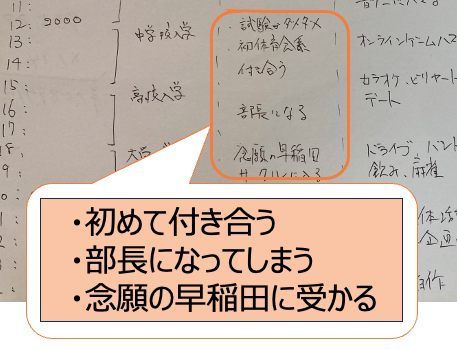 12: 2000
13:
14:
15:
16:
17:
中学校入学
高校入学
・試験がダメダメ
・初体育会系
付き合う
部長になる
念願の早稲田
サークルに入る
オンラインゲームハマ
カラオケ、ビリヤード
デート
ドライブ、バンド
飲み、麻雀
・初めて付き合う
・部長になってしまう
・念願の早稲田に受かる